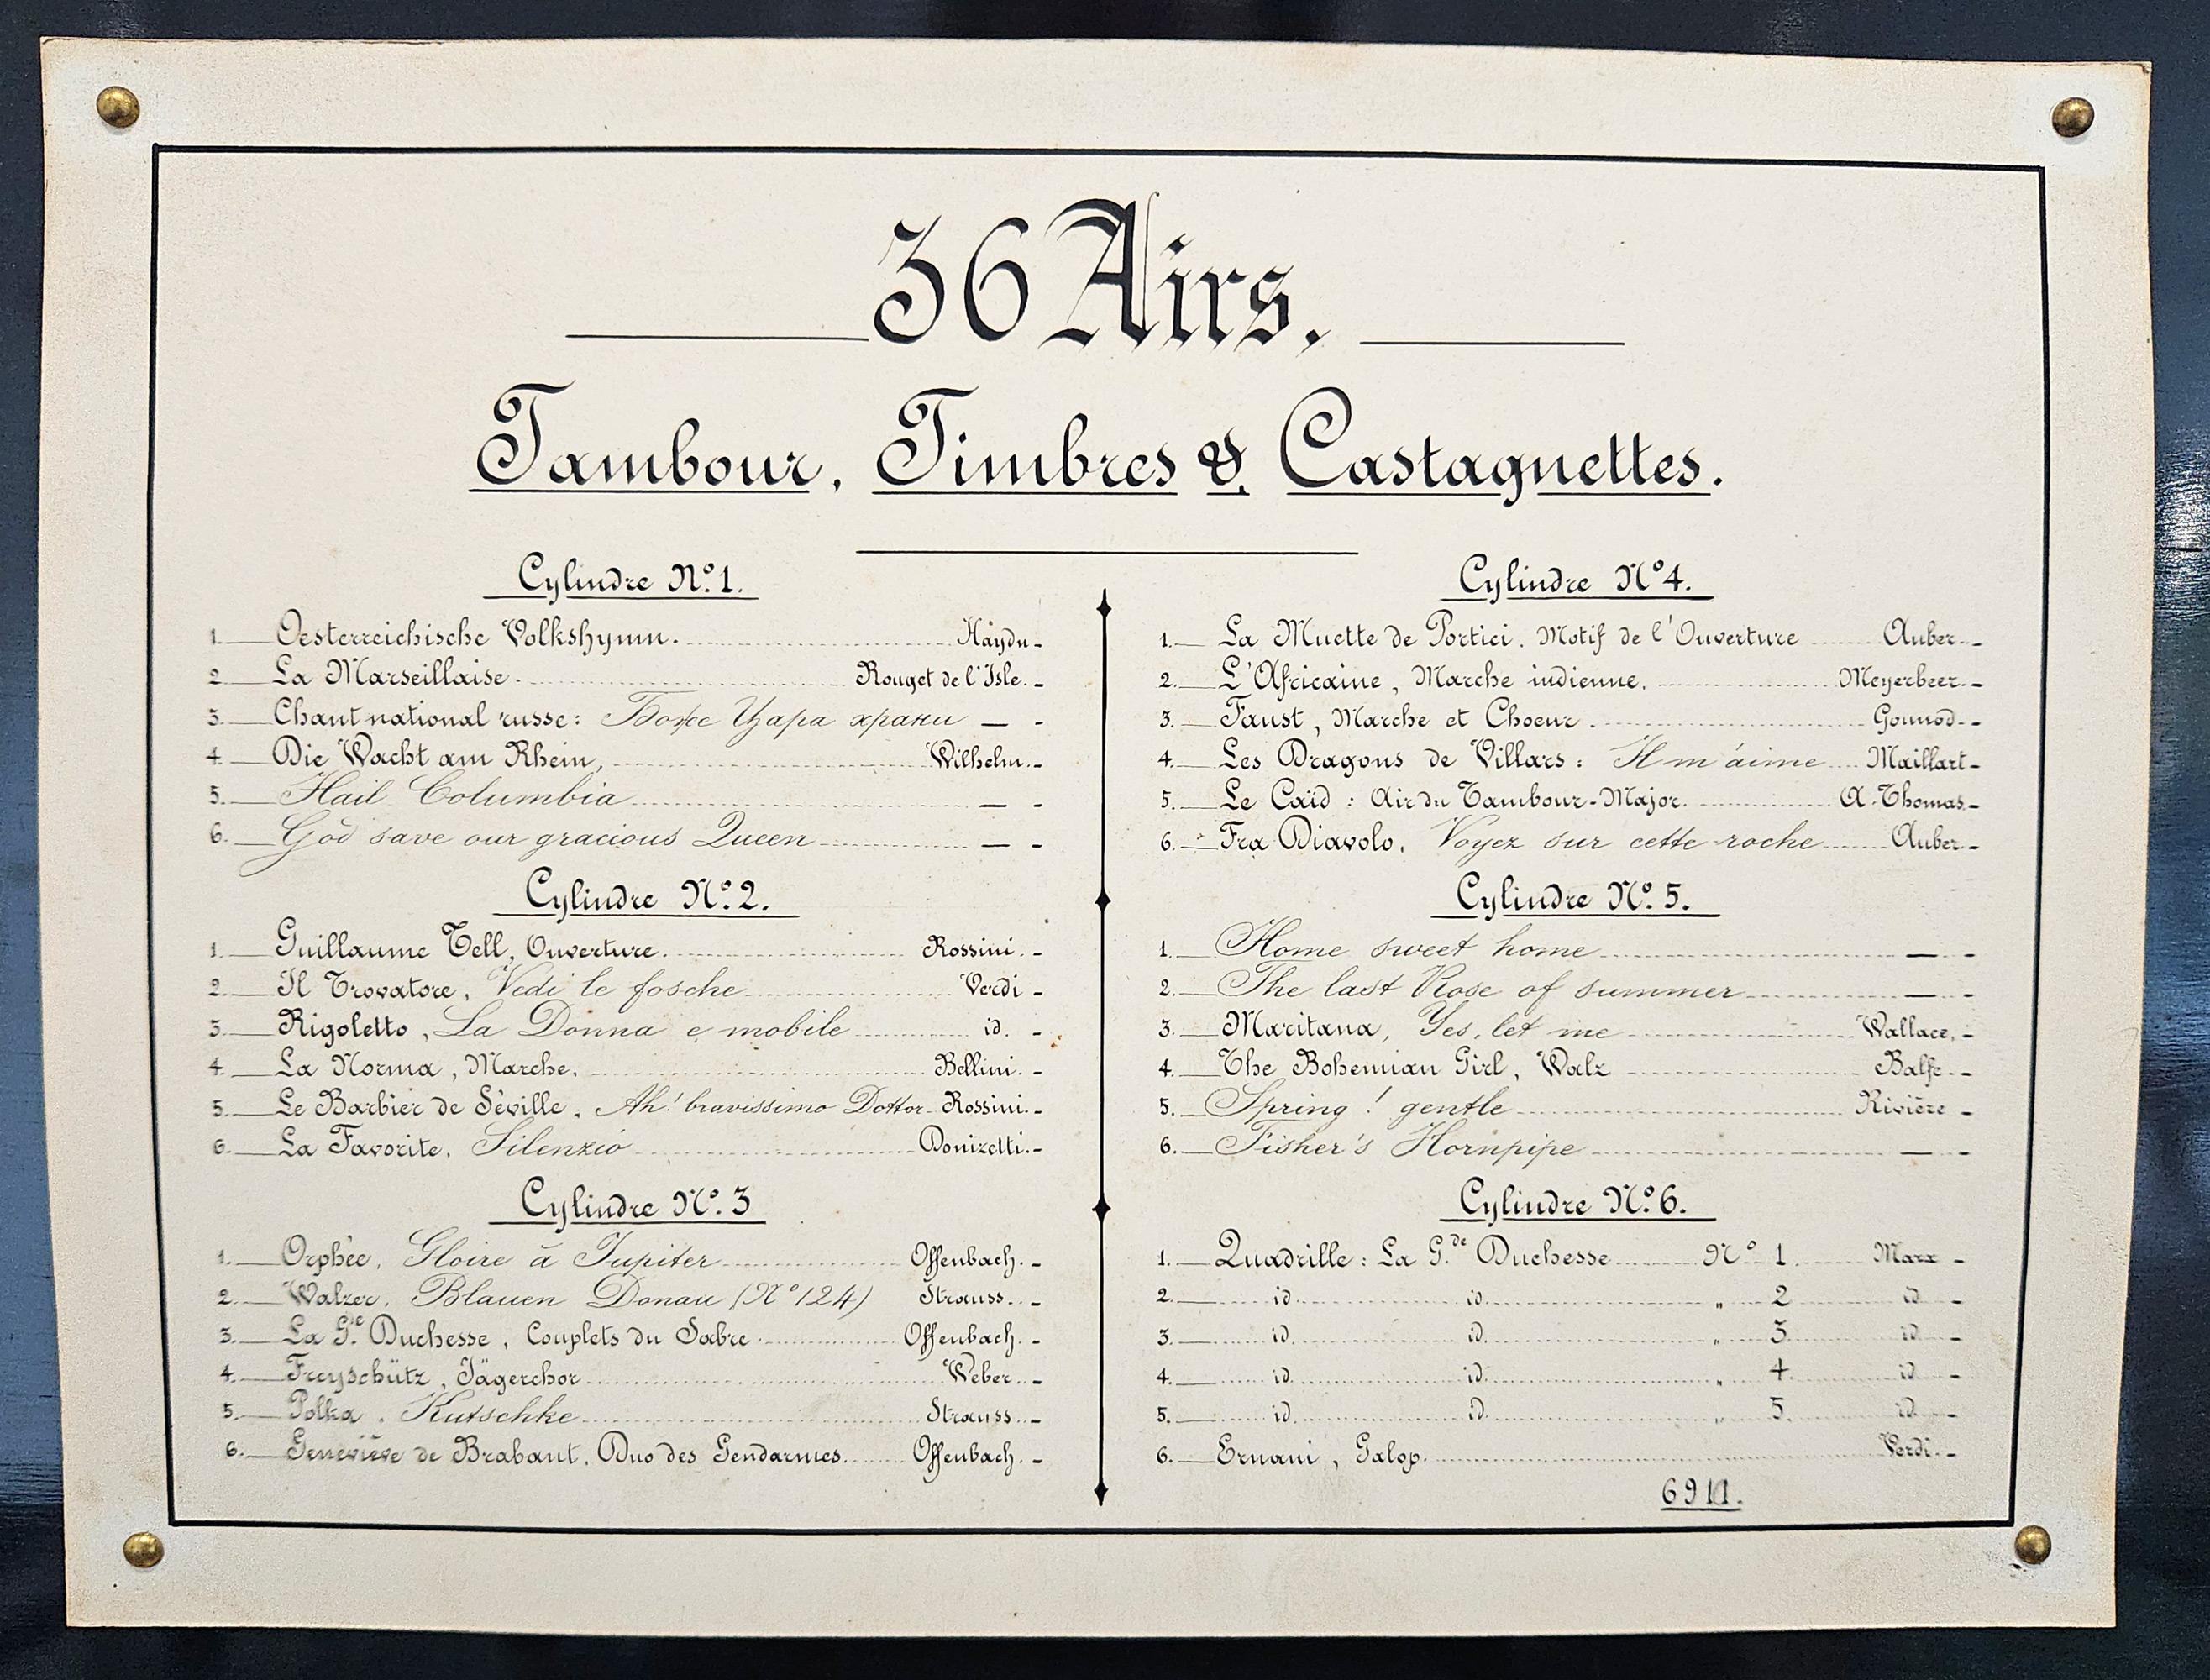 36 Airs.
Tambour, Timbres & Castagnettes.
Cylindre No. 1.
1. Oesterreichische Volkshymn. Haydn
2. La Marseillaise. Rouget de l'Isle.
3. Chant national russe: Боже Царя храни —
4. Die Wacht am Rhein, Wilhelm.
5. Hail Columbia —
6. God save our gracious Queen —
Cylindre No. 2.
1. Guillaume Tell, Ouverture. Rossini.
2. Il Trovatore, Vedi le fosche Verdi
3. Rigoletto, La Donna e mobile id.
4. La Norma, Marche. Bellini.
5. Le Barbier de Séville, Ah! bravissimo Dottor Rossini.
6. La Favorite, Silenzio Donizetti.
Cylindre No. 3
1. Orphée, Gloire à Jupiter Offenbach.
2. Walzer. Blauen Donau (No 124) Strauss.
3. La Gde Duchesse, Couplets du Sabre Offenbach.
4. Freyschütz, Jägerchor Weber.
5. Polka. Kutschke Strauss.
6. Geneviève de Brabant. Duo des Gendarmes. Offenbach.
Cylindre No 4.
1. La Muette de Portici. Motif de l'Ouverture Auber.
2. L'Africaine, Marche indienne. Meyerbeer.
3. Faust, Marche et Choeur. Gounod.
4. Les Dragons de Villars: Il m'aime Maillart
5. Le Caïd: Air du Tambour-Major. A. Thomas.
6. Fra Diavolo. Voyez sur cette roche Auber
Cylindre No. 5.
1. Home sweet home —
2. The last Rose of summer —
3. Maritana, Yes, let me Wallace.
4. The Bohemian Girl, Walz Balfe
5. Spring! gentle Rivière
6. Fisher's Hornpipe —
Cylindre No. 6.
1. Quadrille: La Gde Duchesse No 1. Marx
2. id. id. " 2 id.
3. id. id. " 3 id.
4. id. id. " 4 id.
5. id. id. " 5. id.
6. Ernani, Galop. Verdi.